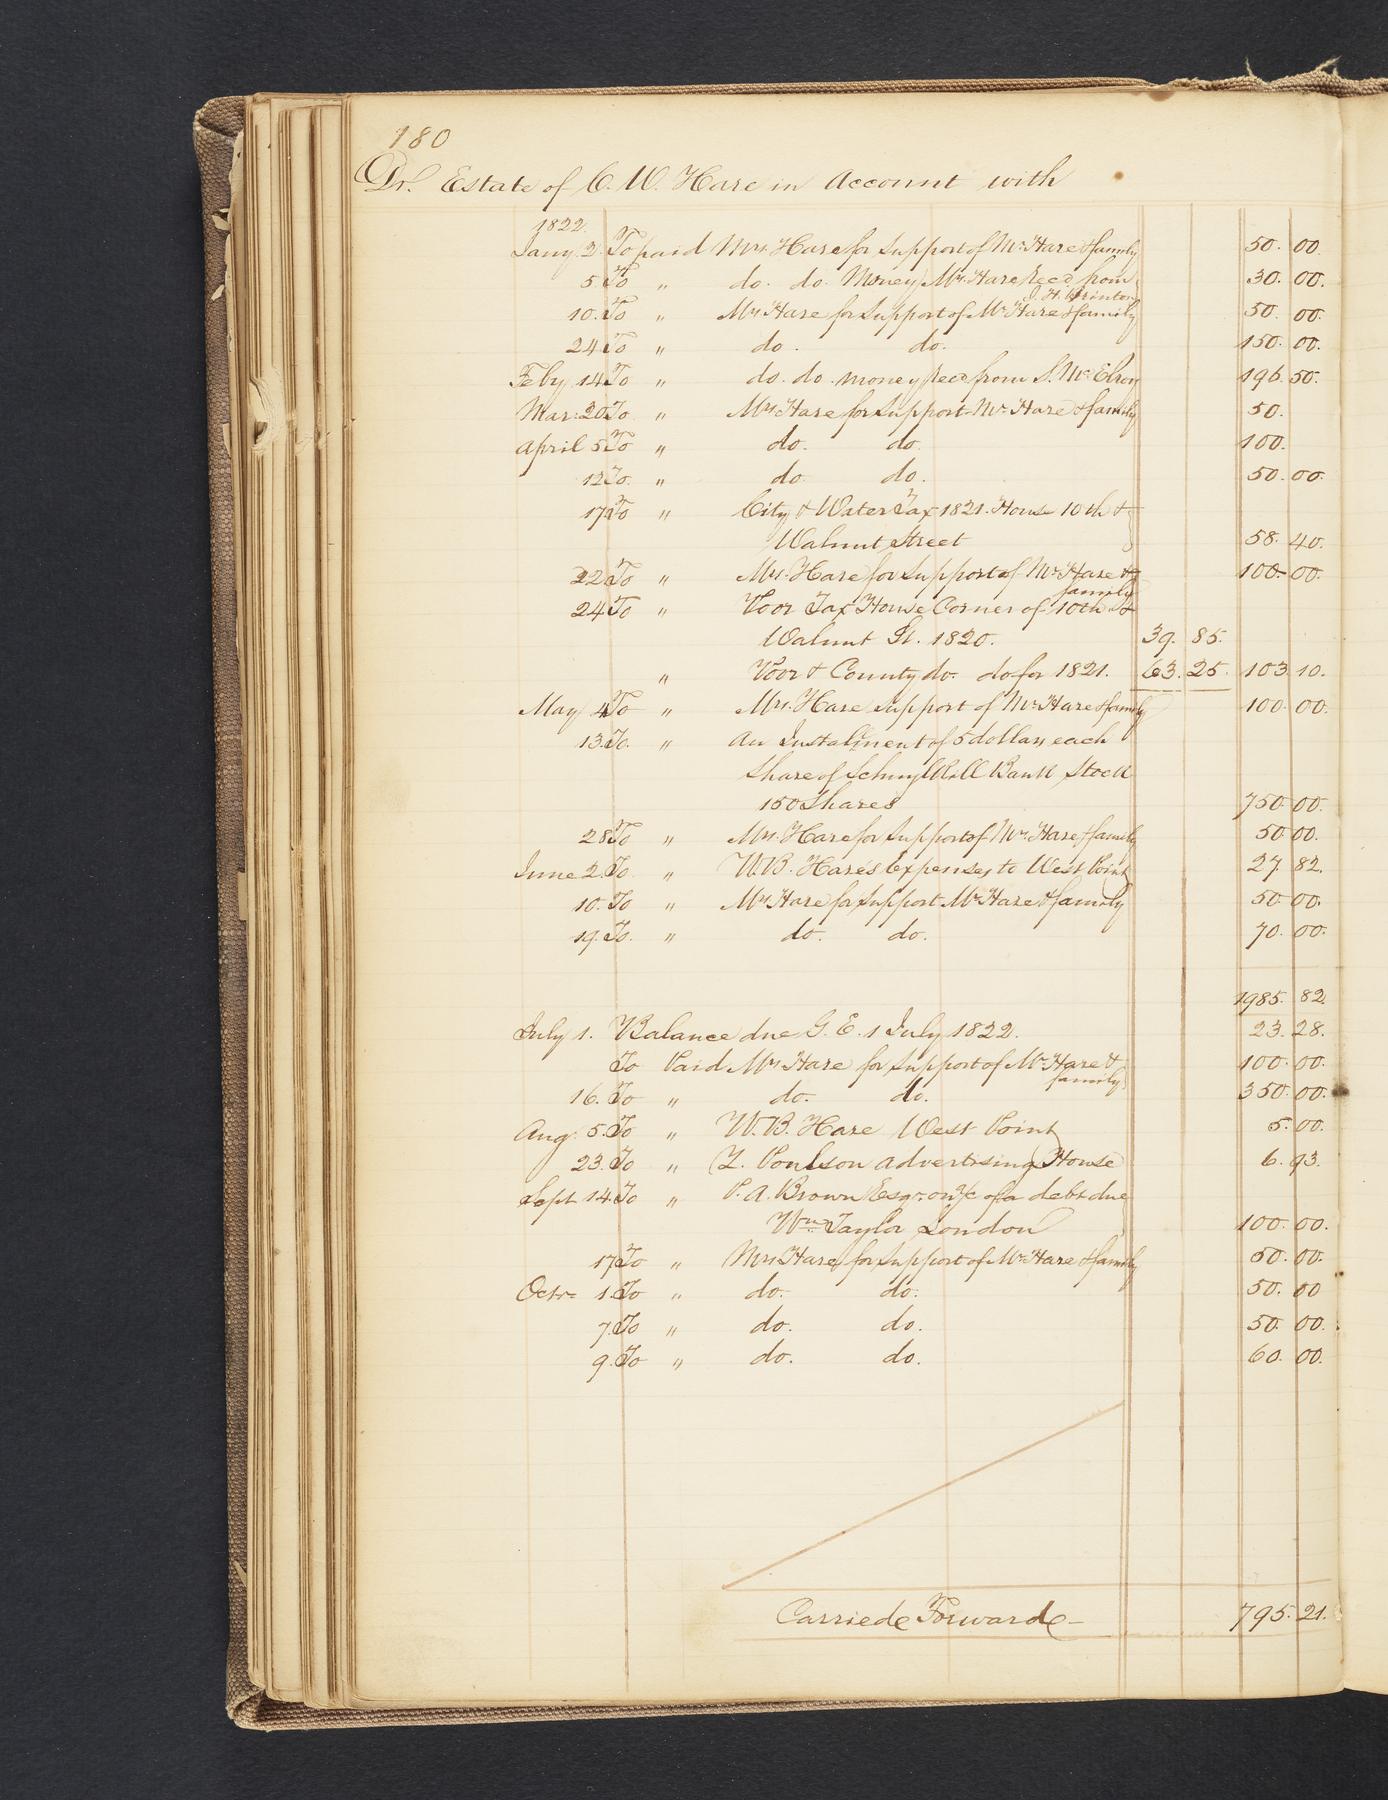 180
Dr. Estate of C. W. Hare in Account with
1822.
Jany. 2. To paid Mrs. Hare for Support of Mr. Hare & family 50. 00.
5 To " do. do. Money Mr. Hare Recd. from 30. 00.
J. H. Brinton
10. To " Mrs Hare for Support of Mr Hare & family 50. 00.
24 To " do. do. 150. 00.
Feby 14 To " do. do. money Recd from S. McElroy 196. 50.
Mar: 20 To " Mrs Hare for Support Mr. Hare & family 50.
April 5 To " do. do. 100.
12 To. " do. do. 50. 00.
17 To " City & Water Tax 1821. House 10th &
Walnut Street 58. 40.
22 To " Mrs. Hare for Support of Mr Hare &
family 100. 00.
24 To " Poor Tax House Corner of 10th &
Walnut St. 1820. 39. 85.
" Poor & County do. do for 1821. 63. 25. 103 10.
May 4 To " Mrs. Hare support of Mr Hare & family 100. 00.
13. To. " An Instalment of 5 dollars each
Share of Schuylkill Bank Stock
150 Shares 750. 00.
28 To " Mrs. Hare for Support of Mr. Hare & family 50 00.
June 2. To. " W. B. Hare's Expenses to West Point 27. 82.
10. To " Mrs Hare for Support Mr Hare & family 50 00.
19. To. " do. do. 70. 00.
1985. 82
July 1. Balance due G. E. 1 July 1822. 23. 28.
To Paid Mrs Hare for Support of Mr Hare & 100. 00.
family
16. To " do. do. 350. 00.
Aug. 5. To " W. B. Hare West Point 5. 00.
23. To " Z. Poulson advertising House 6. 93.
Sept 14. To " P. A. Brown Esqr. on a/c of a debt due
Wm Taylor London 100. 00.
17 To " Mrs Hare for Support of Mr Hare & family 50. 00.
Octr. 1. To " do. do. 50. 00
7. To " do. do. 50. 00.
9. To " do. do. 60. 00.
Carried Forward 795. 21.